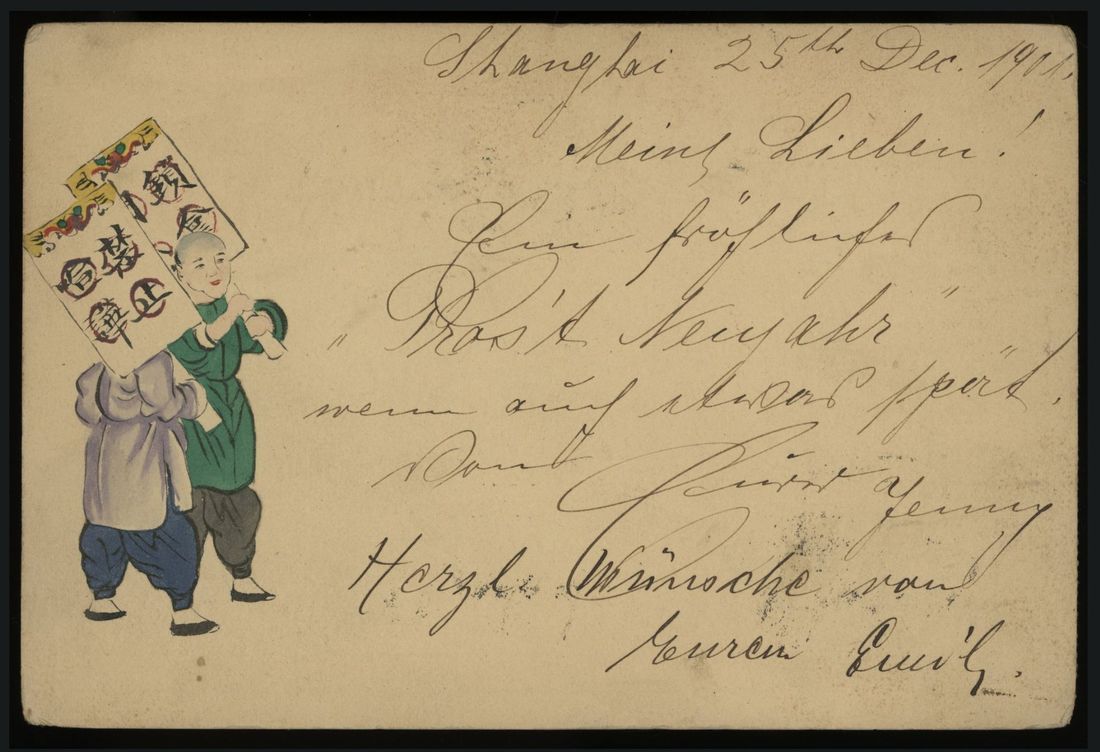 Shanghai 25th Dec. 1901.
Meine Lieben!
Ein fröhliches
"Pros't Neujahr"
wenn auch etwas spät.
Von Eurer Jenny
Herzl. Wünsche von
Eurem Emil.
禁止
鎖